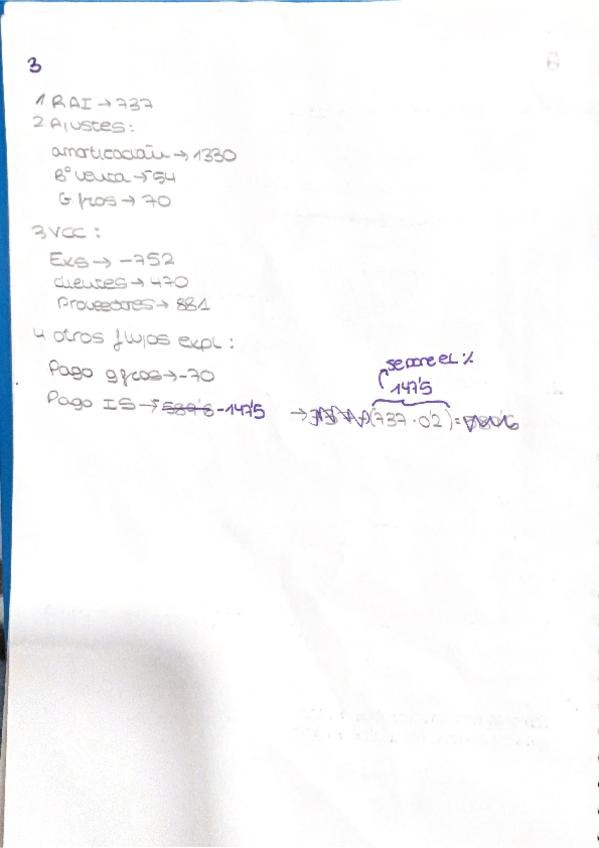 3
1 RAI → 737
2 Ajustes:
amortización → 1330
Bº venta → 54
G fros → 70
3 VCC:
Exs → -752
clientes → 470
Proveedores → 881
4 otros flujos expl:
Pago g fcos → -70
se pone el %
147'5
Pago IS → 589'6 -147'5 → (737 · 0'2) =